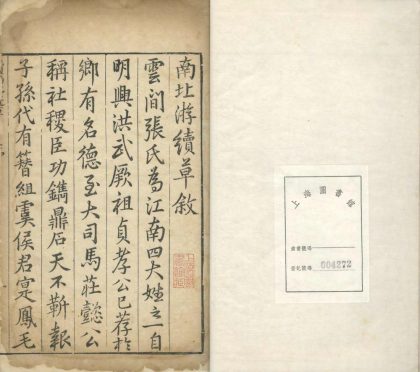 南北游續草敘
雲間張氏為江南四大姓之一自
明興洪武厥祖貞孝公已荐於
鄉有名德至大司馬莊懿公
稱社稷臣功鐫鼎石天不靳報
子孫代有簪組虞侯君寔鳳毛
上海圖書館
登記號碼 604272